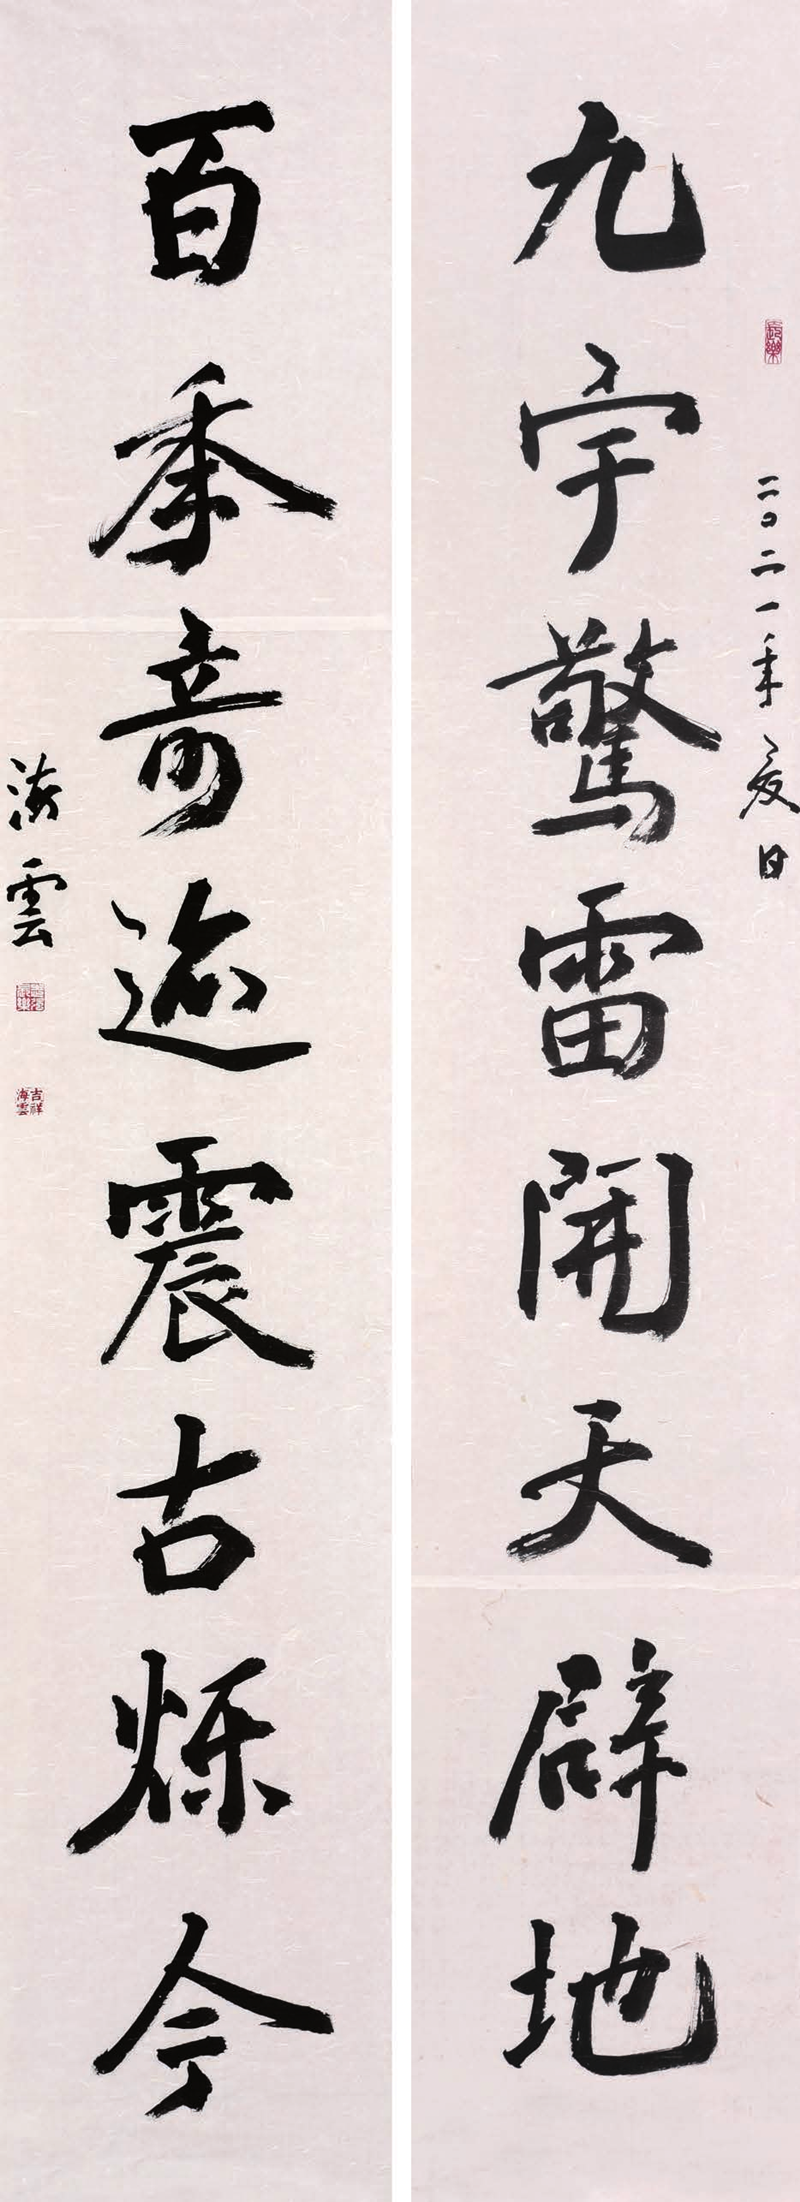 二〇二一年夏日
九宇驚雷開天辟地
百秊奇迹震古烁今
海雲
吉祥海雲